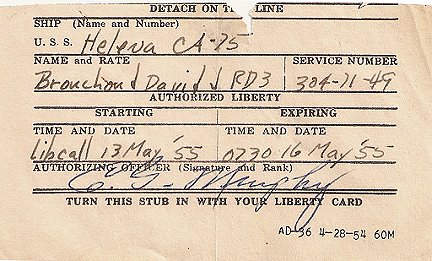 DETACH ON THE LINE
SHIP (Name and Number)
U. S. S. Helena CA-75
NAME AND RATE SERVICE NUMBER
David J RD3 384-71-49
AUTHORIZED LIBERTY
STARTING EXPIRING
TIME AND DATE TIME AND DATE
Libcall 13 May '55 0730 16 May '55
AUTHORIZING OFFICER (Signature and Rank)
Murphy
TURN THIS STUB IN WITH YOUR LIBERTY CARD
AD-36 4-28-54 60M